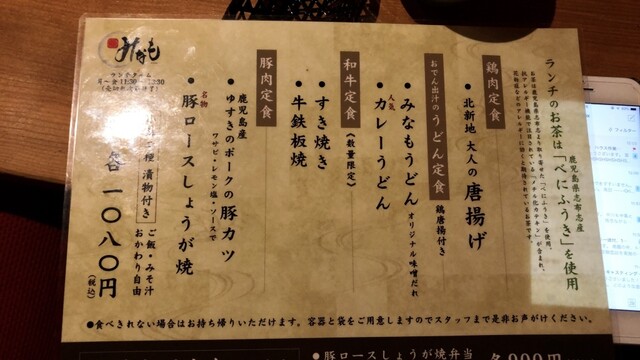 ランチのお茶は 鹿児島県志布志産「べにふうき」を使用
鶏肉定食
●北新地 大人の唐揚げ
おでん出汁のうどん定食 鶏唐揚付き
●みなもうどん オリジナル味噌だれ
●人気 カレーうどん
和牛定食 (数量限定)
●すき焼き
●牛鉄板焼
豚肉定食
●鹿児島産 ゆすきのポークの豚カツ
ワサビ・レモン塩・ソースで
●名物 豚ロースしょうが焼
みなも
ランチタイム
種 漬物付き
ご飯・みそ汁
おかわり自由
各 一〇八〇円 (税込)
●食べきれない場合はお持ち帰りいただけます。容器と袋をご用意しますのでスタッフまで是非お声がけください。
●豚ロースしょうが焼弁当